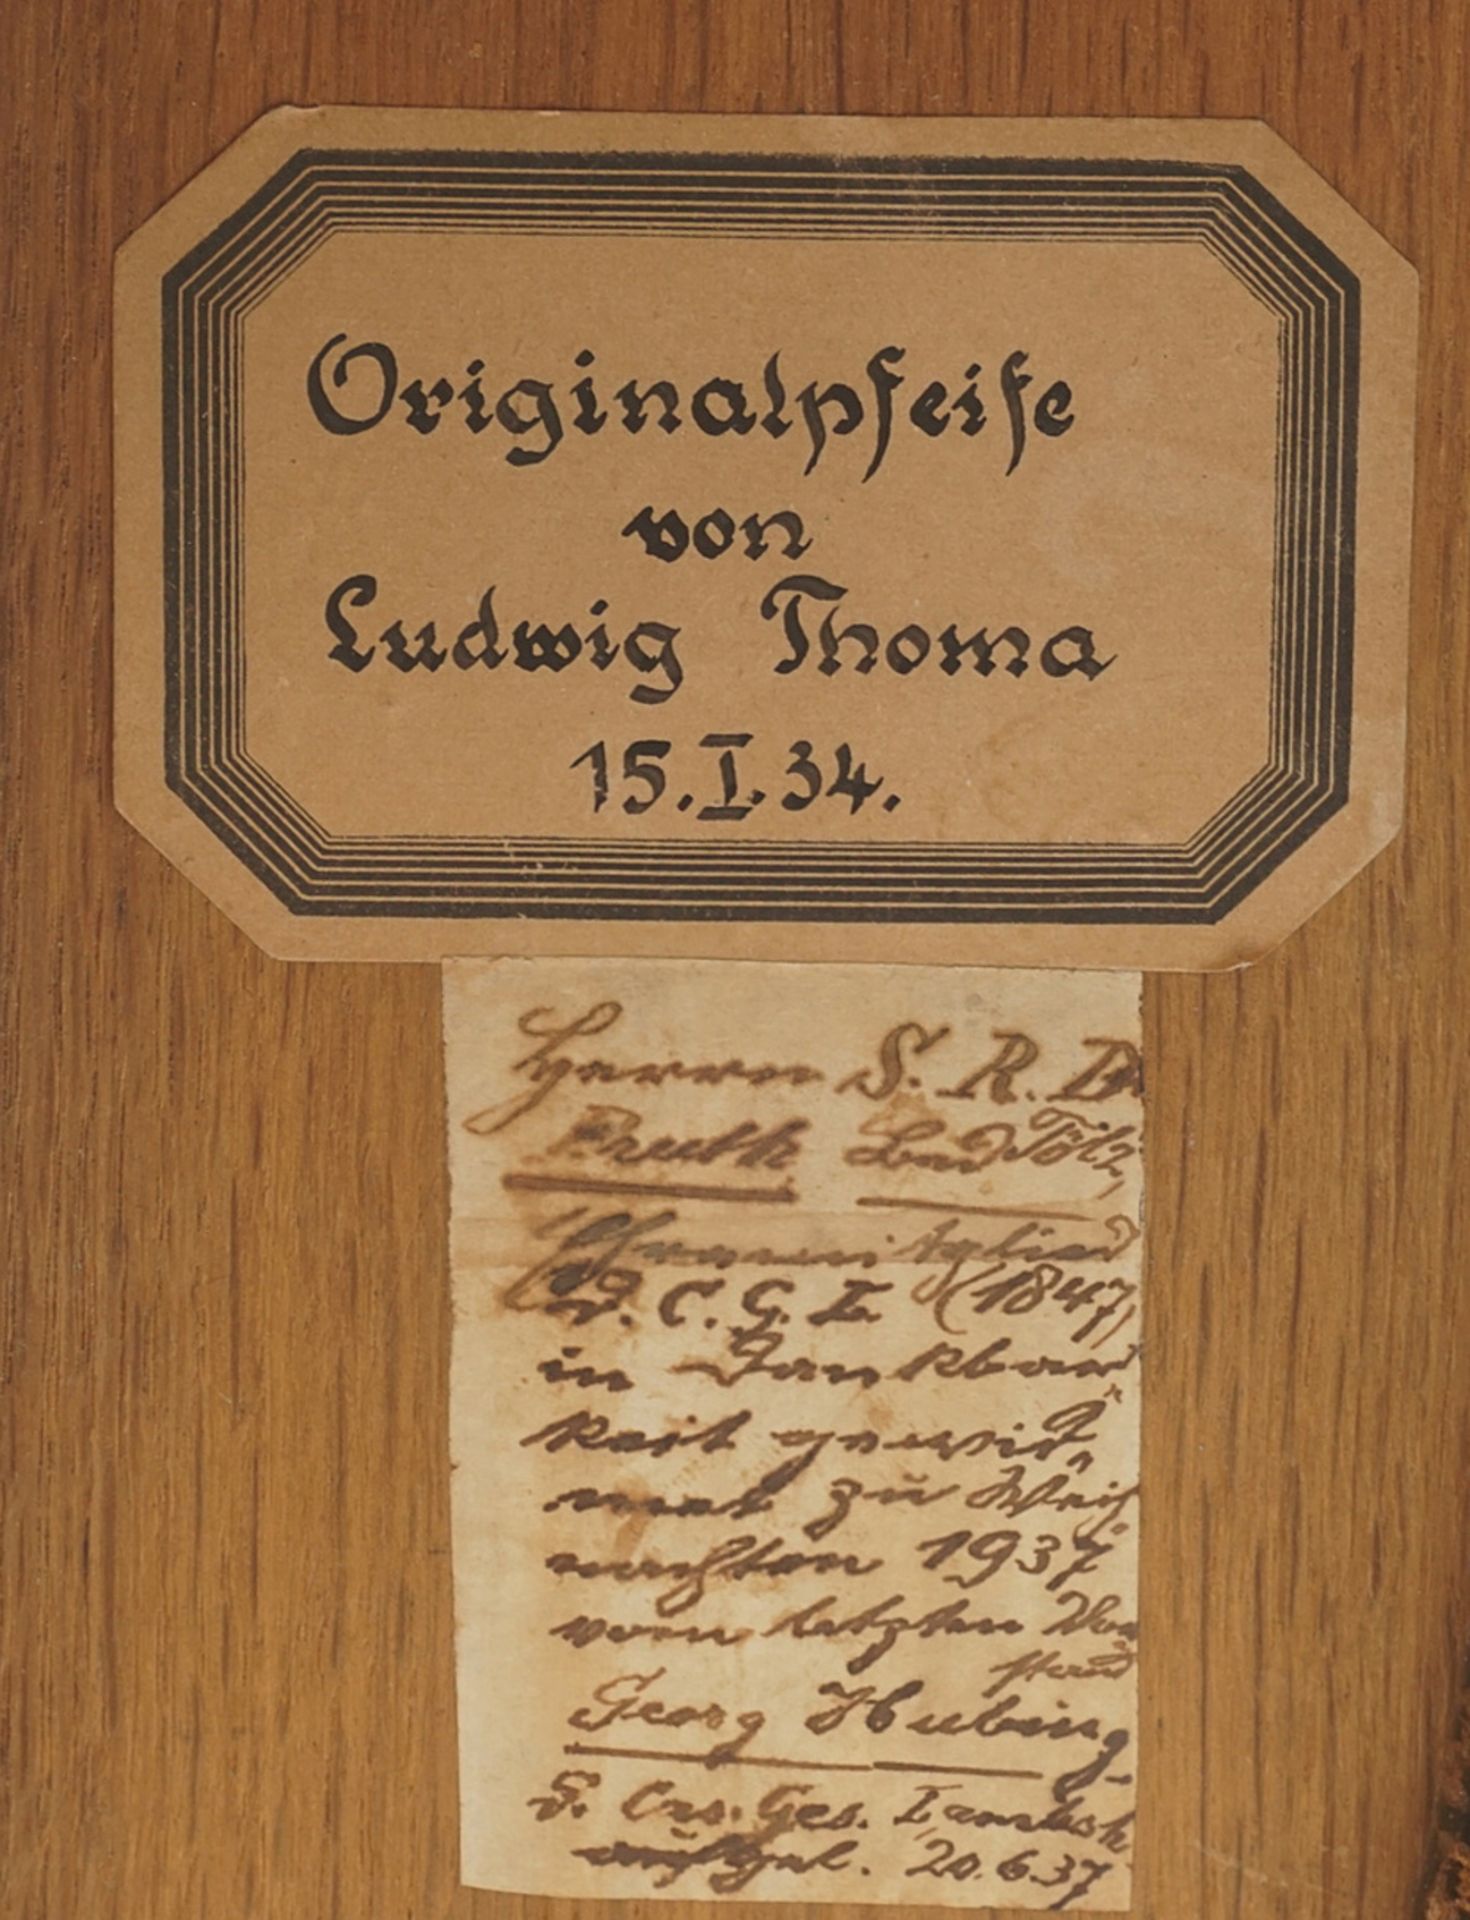 Originalpfeife
von
Ludwig Thoma
15.I.34.
Herrn S. R. Dr
Bad Tölz,
Ehrenmitglied
d. C. G. L. (1847)
in Dankbar
keit gewid
met zu Weih
nachten 1937
vom letzten Vor
stand
Georg Hubing
d. Crs. Ges.
aufgel. 20.6.37